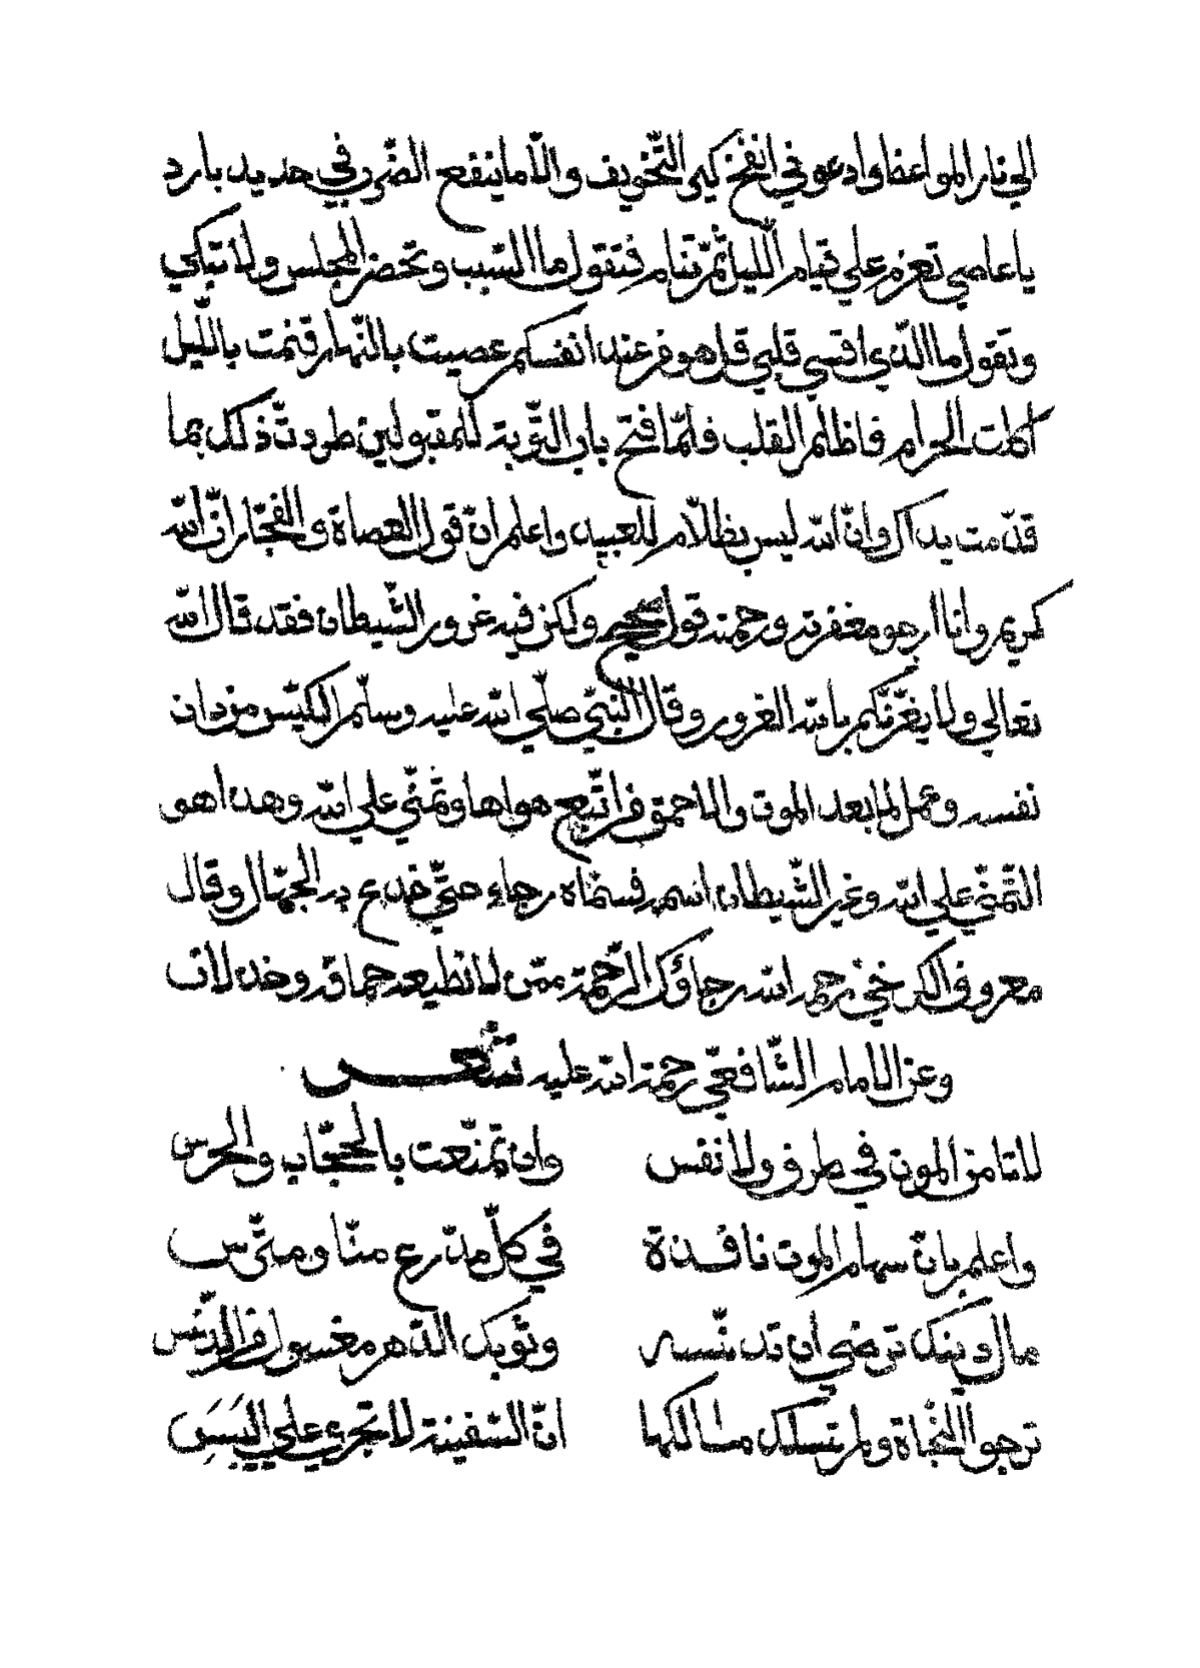 الي نار المواعظ وادعوه في انفخ كير التخويف والّا ما ينفع الضّرب في حديد بارد
يا عاصي تعزم علي قيام اللّيل ثمّ تنام فتقول ما السّبب وتحضر المجلس ولا تبكي
وتقول ما الّذي اقسي قلبي قل هو من عند انفسكم عصيت بالنّهار فنمت باللّيل
اكلت الحرام فاظلم القلب فلمّا فتح باب التّوبة للمقبولين طردت ذلك بما
قدّمت يداك وانّ الله ليس بظلّام للعبيد واعلم انّ قول العصاة والفجّار انّ الله
كريم وانا ارجو مغفرته ورحمته قول صحيح ولكن فيه غرور الشّيطان فقد قال الله
تعالي ولا يغرّنّكم بالله الغرور وقال النّبيّ صلّي الله عليه وسلّم الكيّس من دان
نفسه وعمل لما بعد الموت والاحمق من اتّبع هواها وتمنّي علي الله وهذا هو
التّمنّي علي الله وغير الشّيطان اسمه فسمّاه رجاء حتّي خدع به الجهّال وقال
معروف الكرخي رحمه الله رجاؤك الرّحمة ممّن لا تطيعه حماقة وخذلان
وعن الامام الشّافعّي رحمة الله عليه شعر
لا تامن الموت في طرف ولا نفس وان تمنّعت بالحجّاب والحرس
واعلم بانّ سهام الموت نافذة في كلّ مدّرع منّا ومتّرس
ما بال دينك ترضي ان تدنّسه وثوبك الدّهر مغسول من الدّنس
ترجوا النّجاة ولم تسلك مسالكها انّ السّفينة لا تجري علي اليَبَسِ